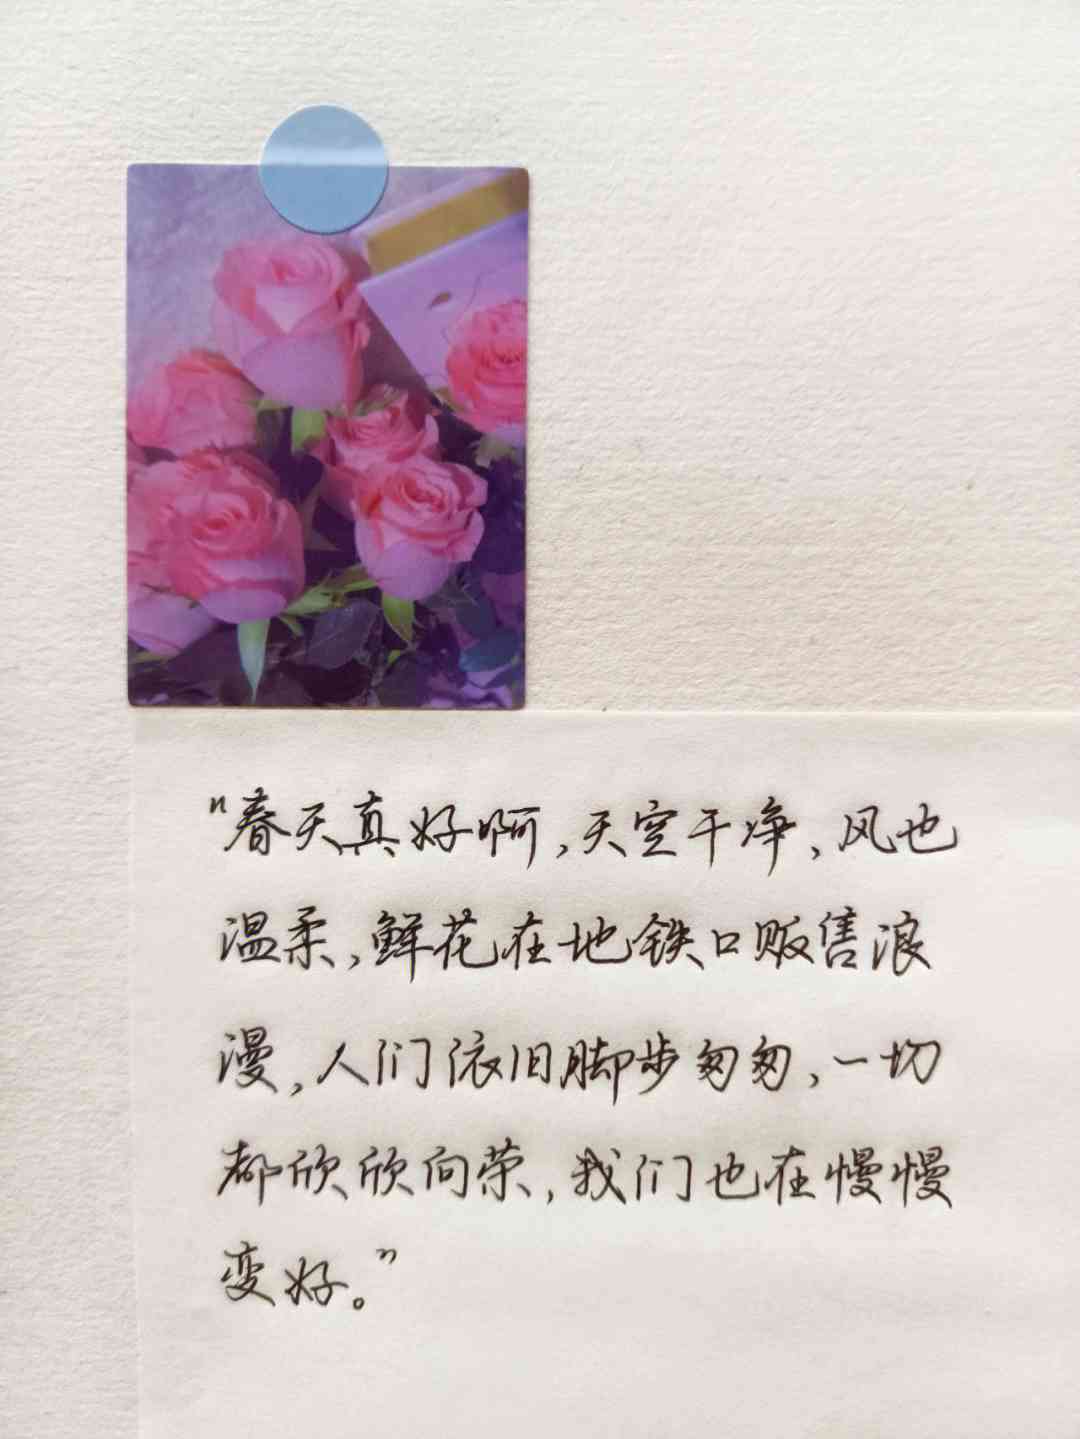 “春天真好啊,天空干净,风也
温柔,鲜花在地铁口贩售浪
漫,人们依旧脚步匆匆,一切
都欣欣向荣,我们也在慢慢
变好。”